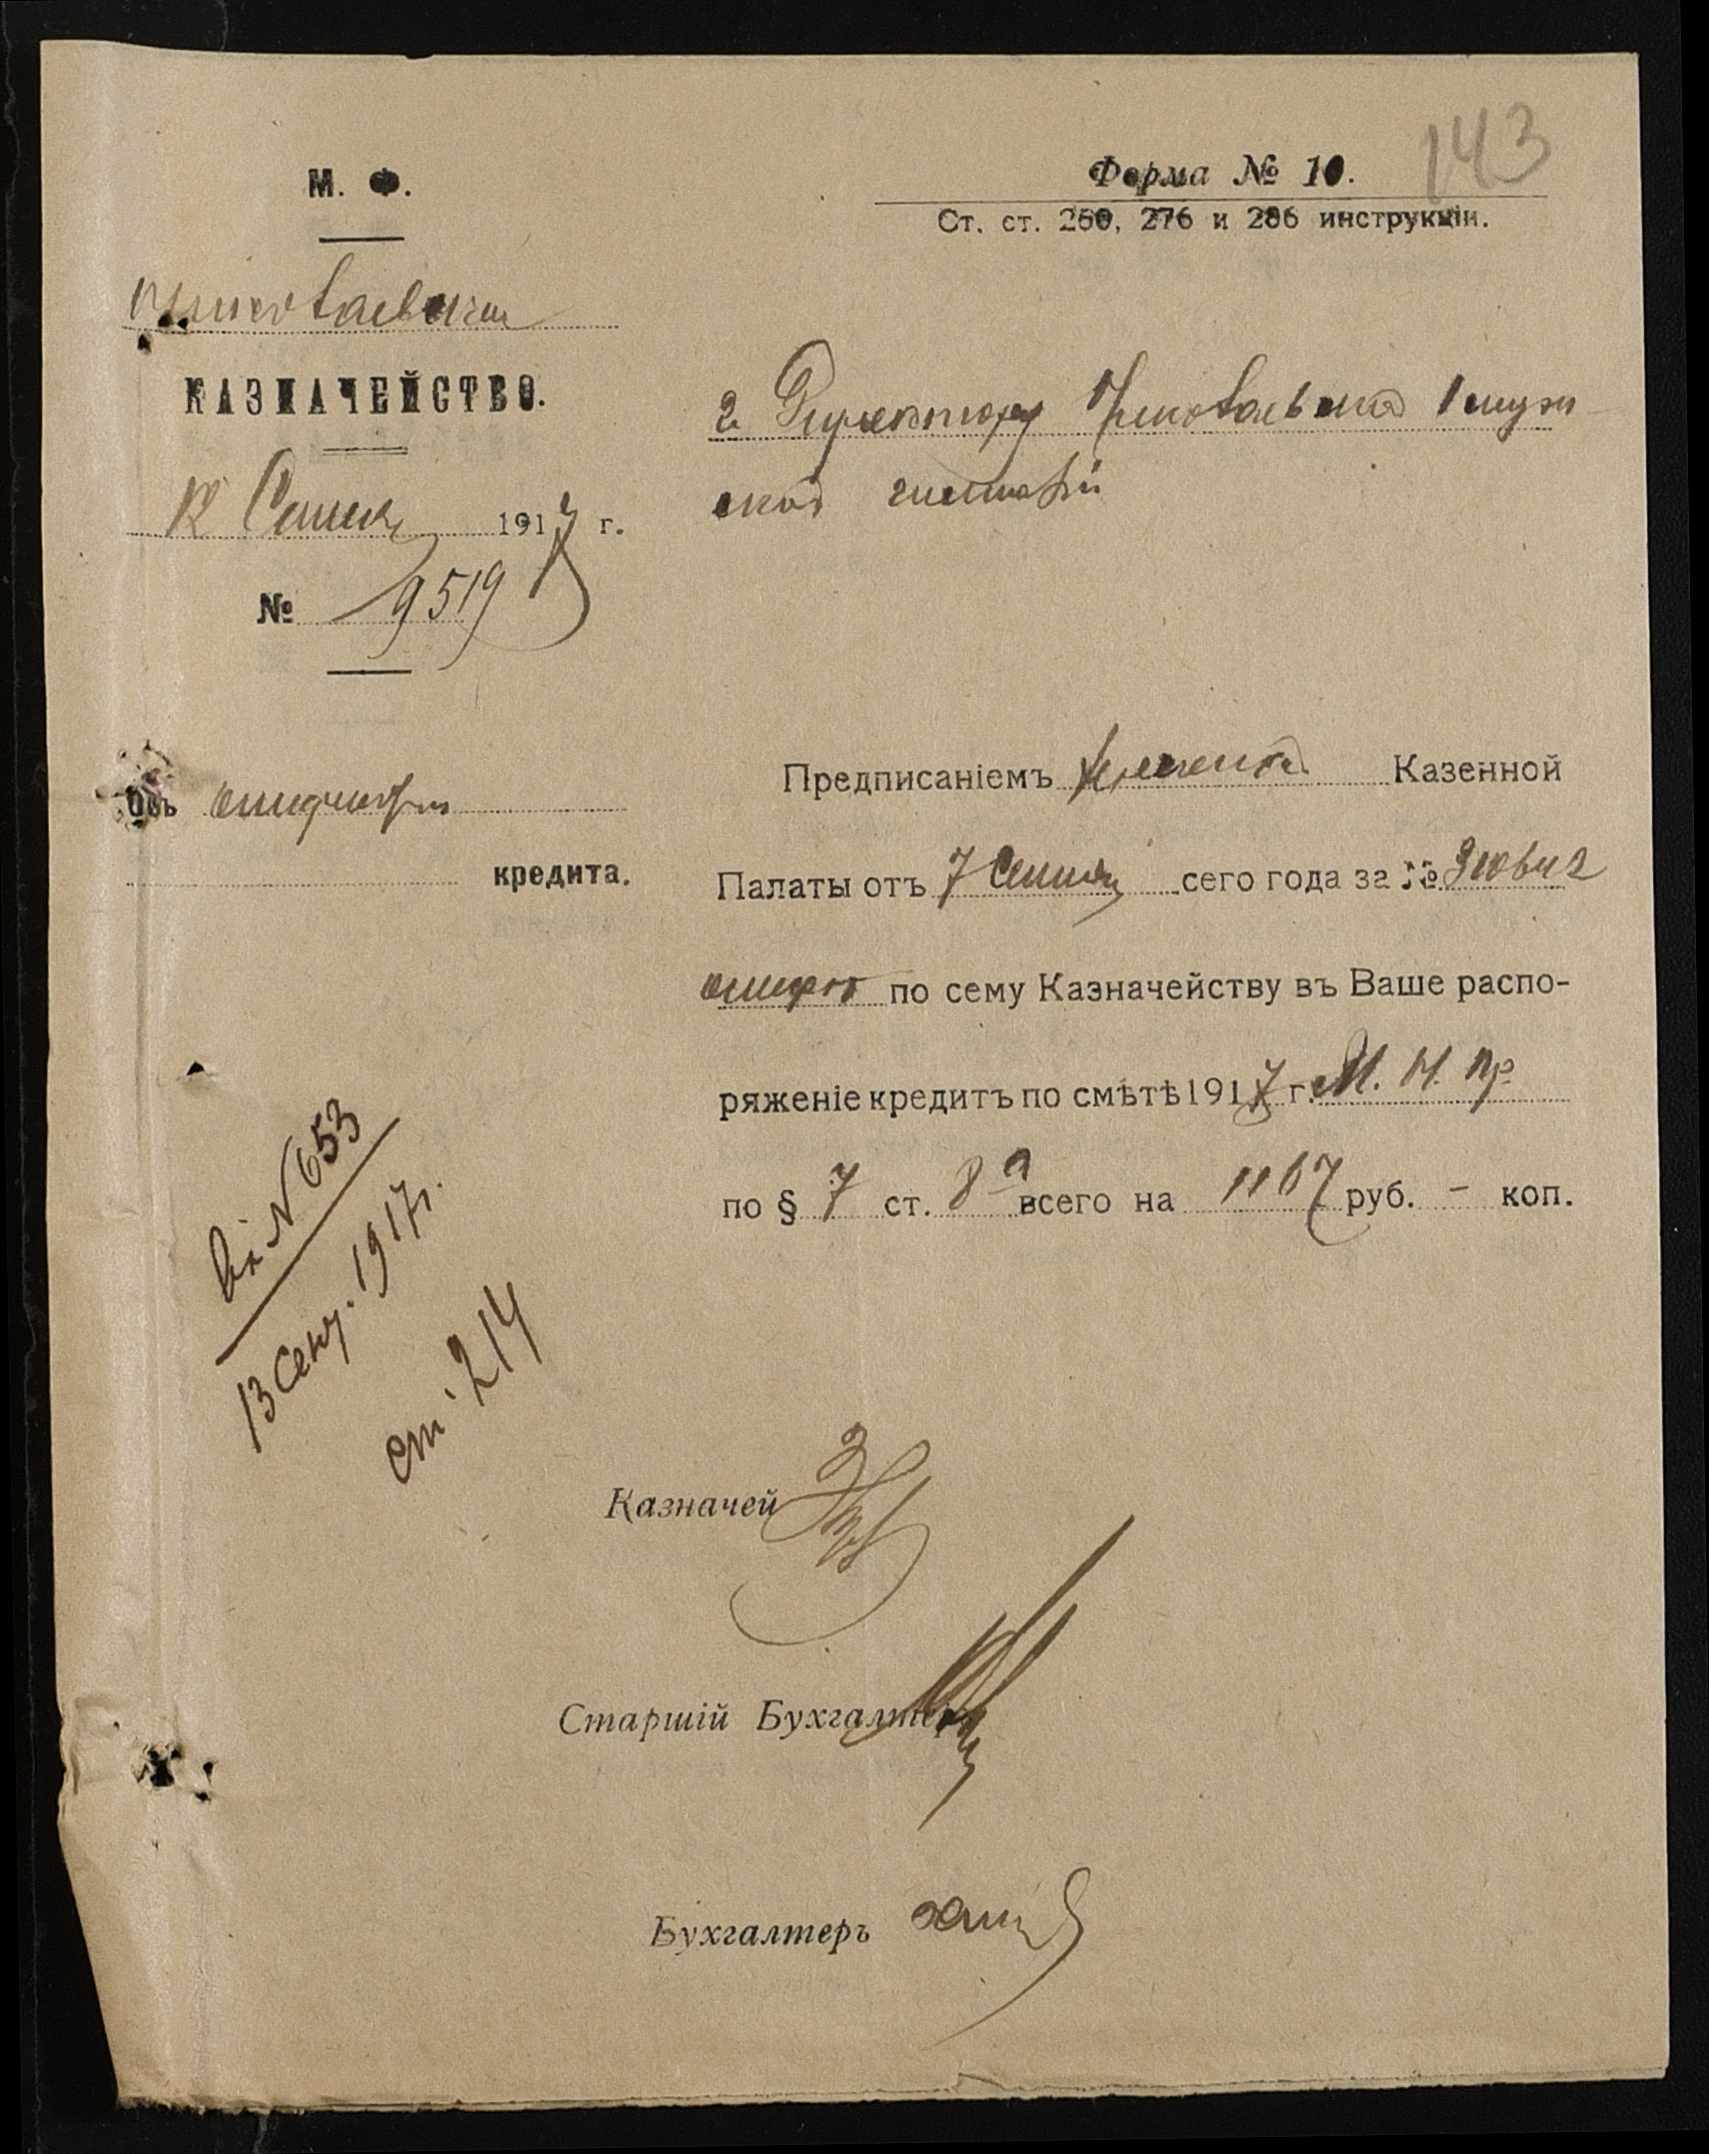 143
М. Ф.
Форма № 10.
Ст. ст. 260, 276 и 286 инструкціи.
Николаевское
КАЗНАЧЕЙСТВО.
12 Сент 1917 г.
№ 9519
Г. Директору Николаевской 1 муж
ской гимназіи
Объ открытіи
кредита.
Предписаніемъ Казенной
Палаты отъ 7 Сентяб сего года за №
открытъ по сему Казначейству въ Ваше распо-
ряженіе кредитъ по смѣтѣ 1917 г. М. Н. Пр
по § 7 ст. 8а всего на 1167 руб. - коп.
Вх N 653
13 Сент. 1917 г.
ст. 214
Казначей
Старшій Бухгалтеръ
Бухгалтеръ